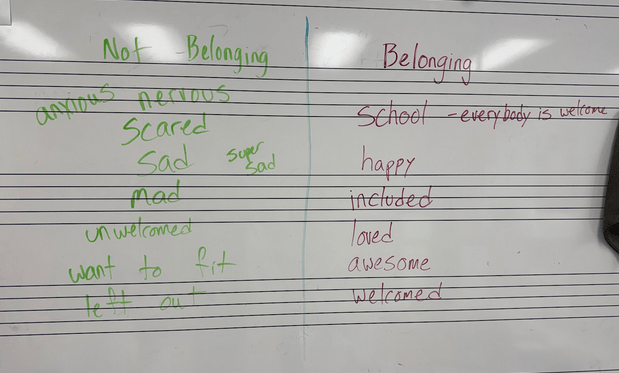 Not Belonging
anxious nervous
scared
sad super sad
mad
unwelcomed
want to fit
left out
Belonging
school - everybody is welcome
happy
included
loved
awesome
welcomed